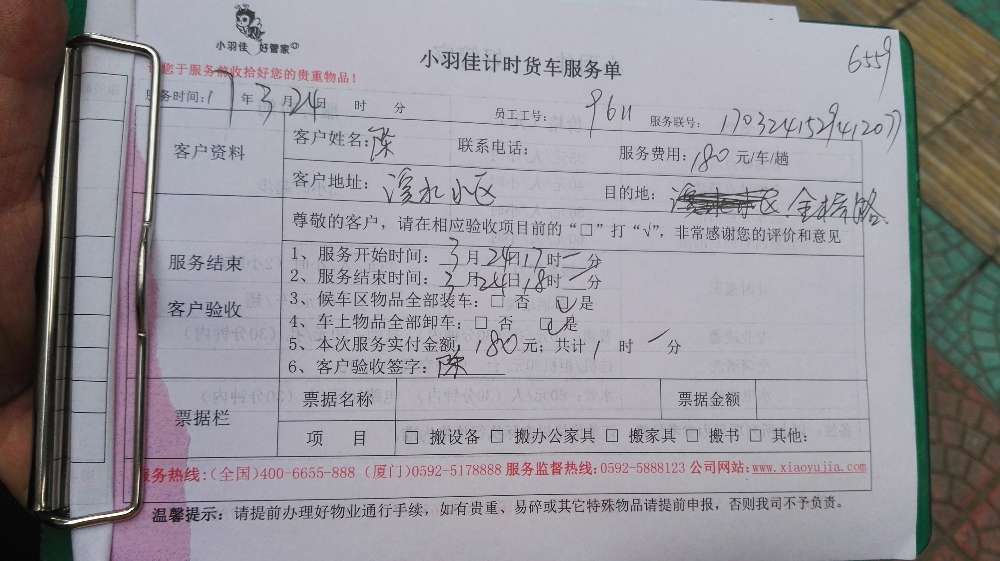 小羽佳 好管家
小羽佳计时货车服务单
6559
您于服务前收拾好您的贵重物品！
服务时间: 17 年 3 月 24 日 时 分 员工工号: 9611 服务联号: 170324152941207
客户资料
客户姓名: 陈 联系电话: 服务费用: 180 元/车/趟
客户地址: 溪水小区 目的地: 金榜路
尊敬的客户，请在相应验收项目前的“□”打“√”，非常感谢您的评价和意见
服务结束
客户验收
1、服务开始时间: 3 月 24 日 17 时 一 分
2、服务结束时间: 3 月 24 日 18 时 一 分
3、候车区物品全部装车: □ 否 ☑ 是
4、车上物品全部卸车: □ 否 ☑ 是
5、本次服务实付金额, 180 元; 共计 1 时 一 分
6、客户验收签字: 陈
票据栏
票据名称 票据金额
项 目 □ 搬设备 □ 搬办公家具 □ 搬家具 □ 搬书 □ 其他:
服务热线:(全国)400-6655-888 (厦门)0592-5178888 服务监督热线:0592-5888123 公司网站:www.xiaoyujia.com
温馨提示: 请提前办理好物业通行手续，如有贵重、易碎或其它特殊物品请提前申报，否则我司不予负责。